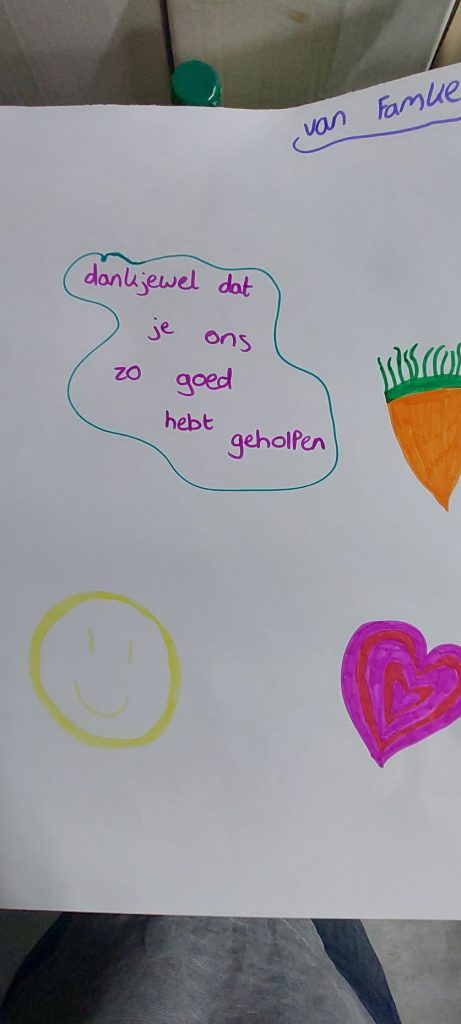 van Famke
dankjewel dat
je ons
zo goed
hebt
geholpen